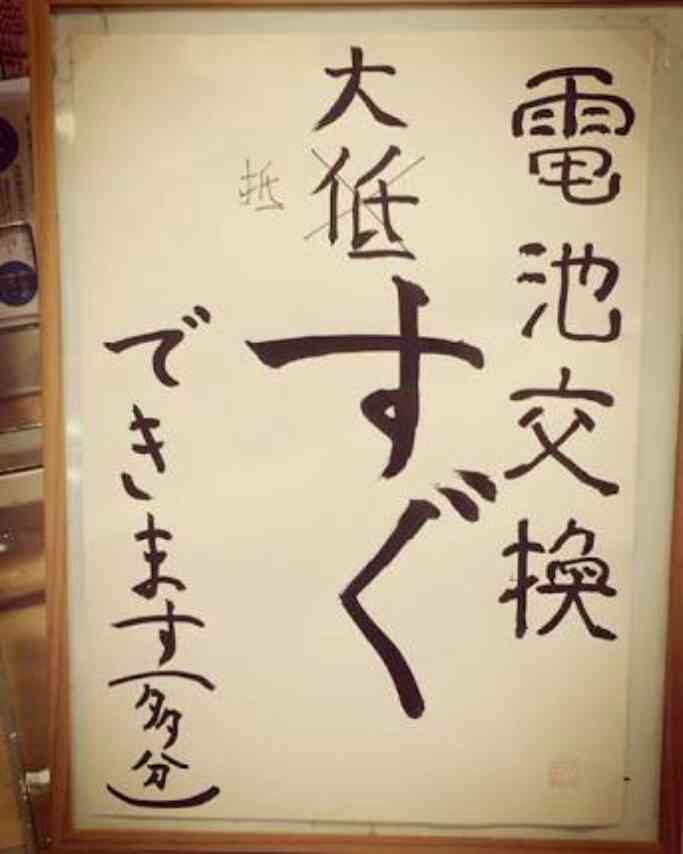 電池交換
大低すぐ
抵
できます(多分)